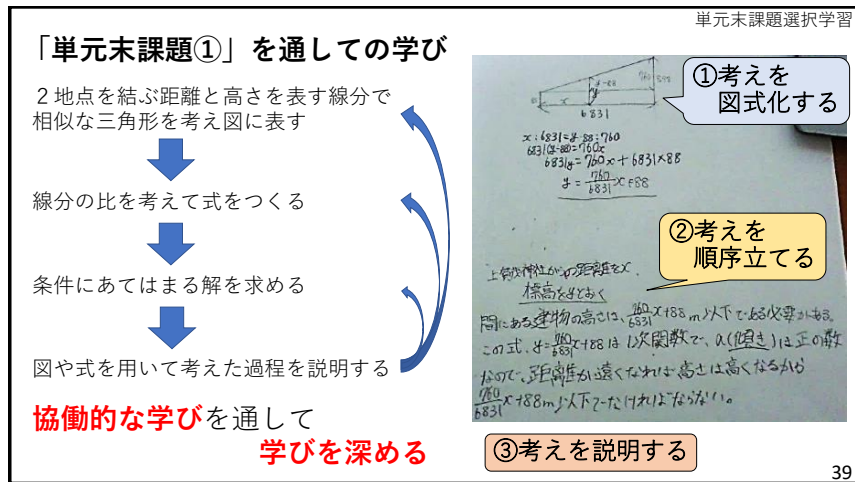 単元末課題選択学習
「単元末課題①」を通しての学び
２地点を結ぶ距離と高さを表す線分で
相似な三角形を考え図に表す
線分の比を考えて式をつくる
条件にあてはまる解を求める
図や式を用いて考えた過程を説明する
協働的な学びを通して
学びを深める
①考えを
図式化する
x
y
6831
x:6831=y-88:760
6831(y-88)=760x
6831y=760x+6831×88
y=760/6831x+88
②考えを
順序立てる
上賀茂神社からの距離をx、
標高をyとおく
間にある建物の高さは、760/6831x+88m以下である必要がある。
この式、y=760/6831x+88は1次関数で、a(傾き)は正の数
なので、距離が遠くなれば高さは高くなるから
760/6831x+88m以下でなければならない。
③考えを説明する
39